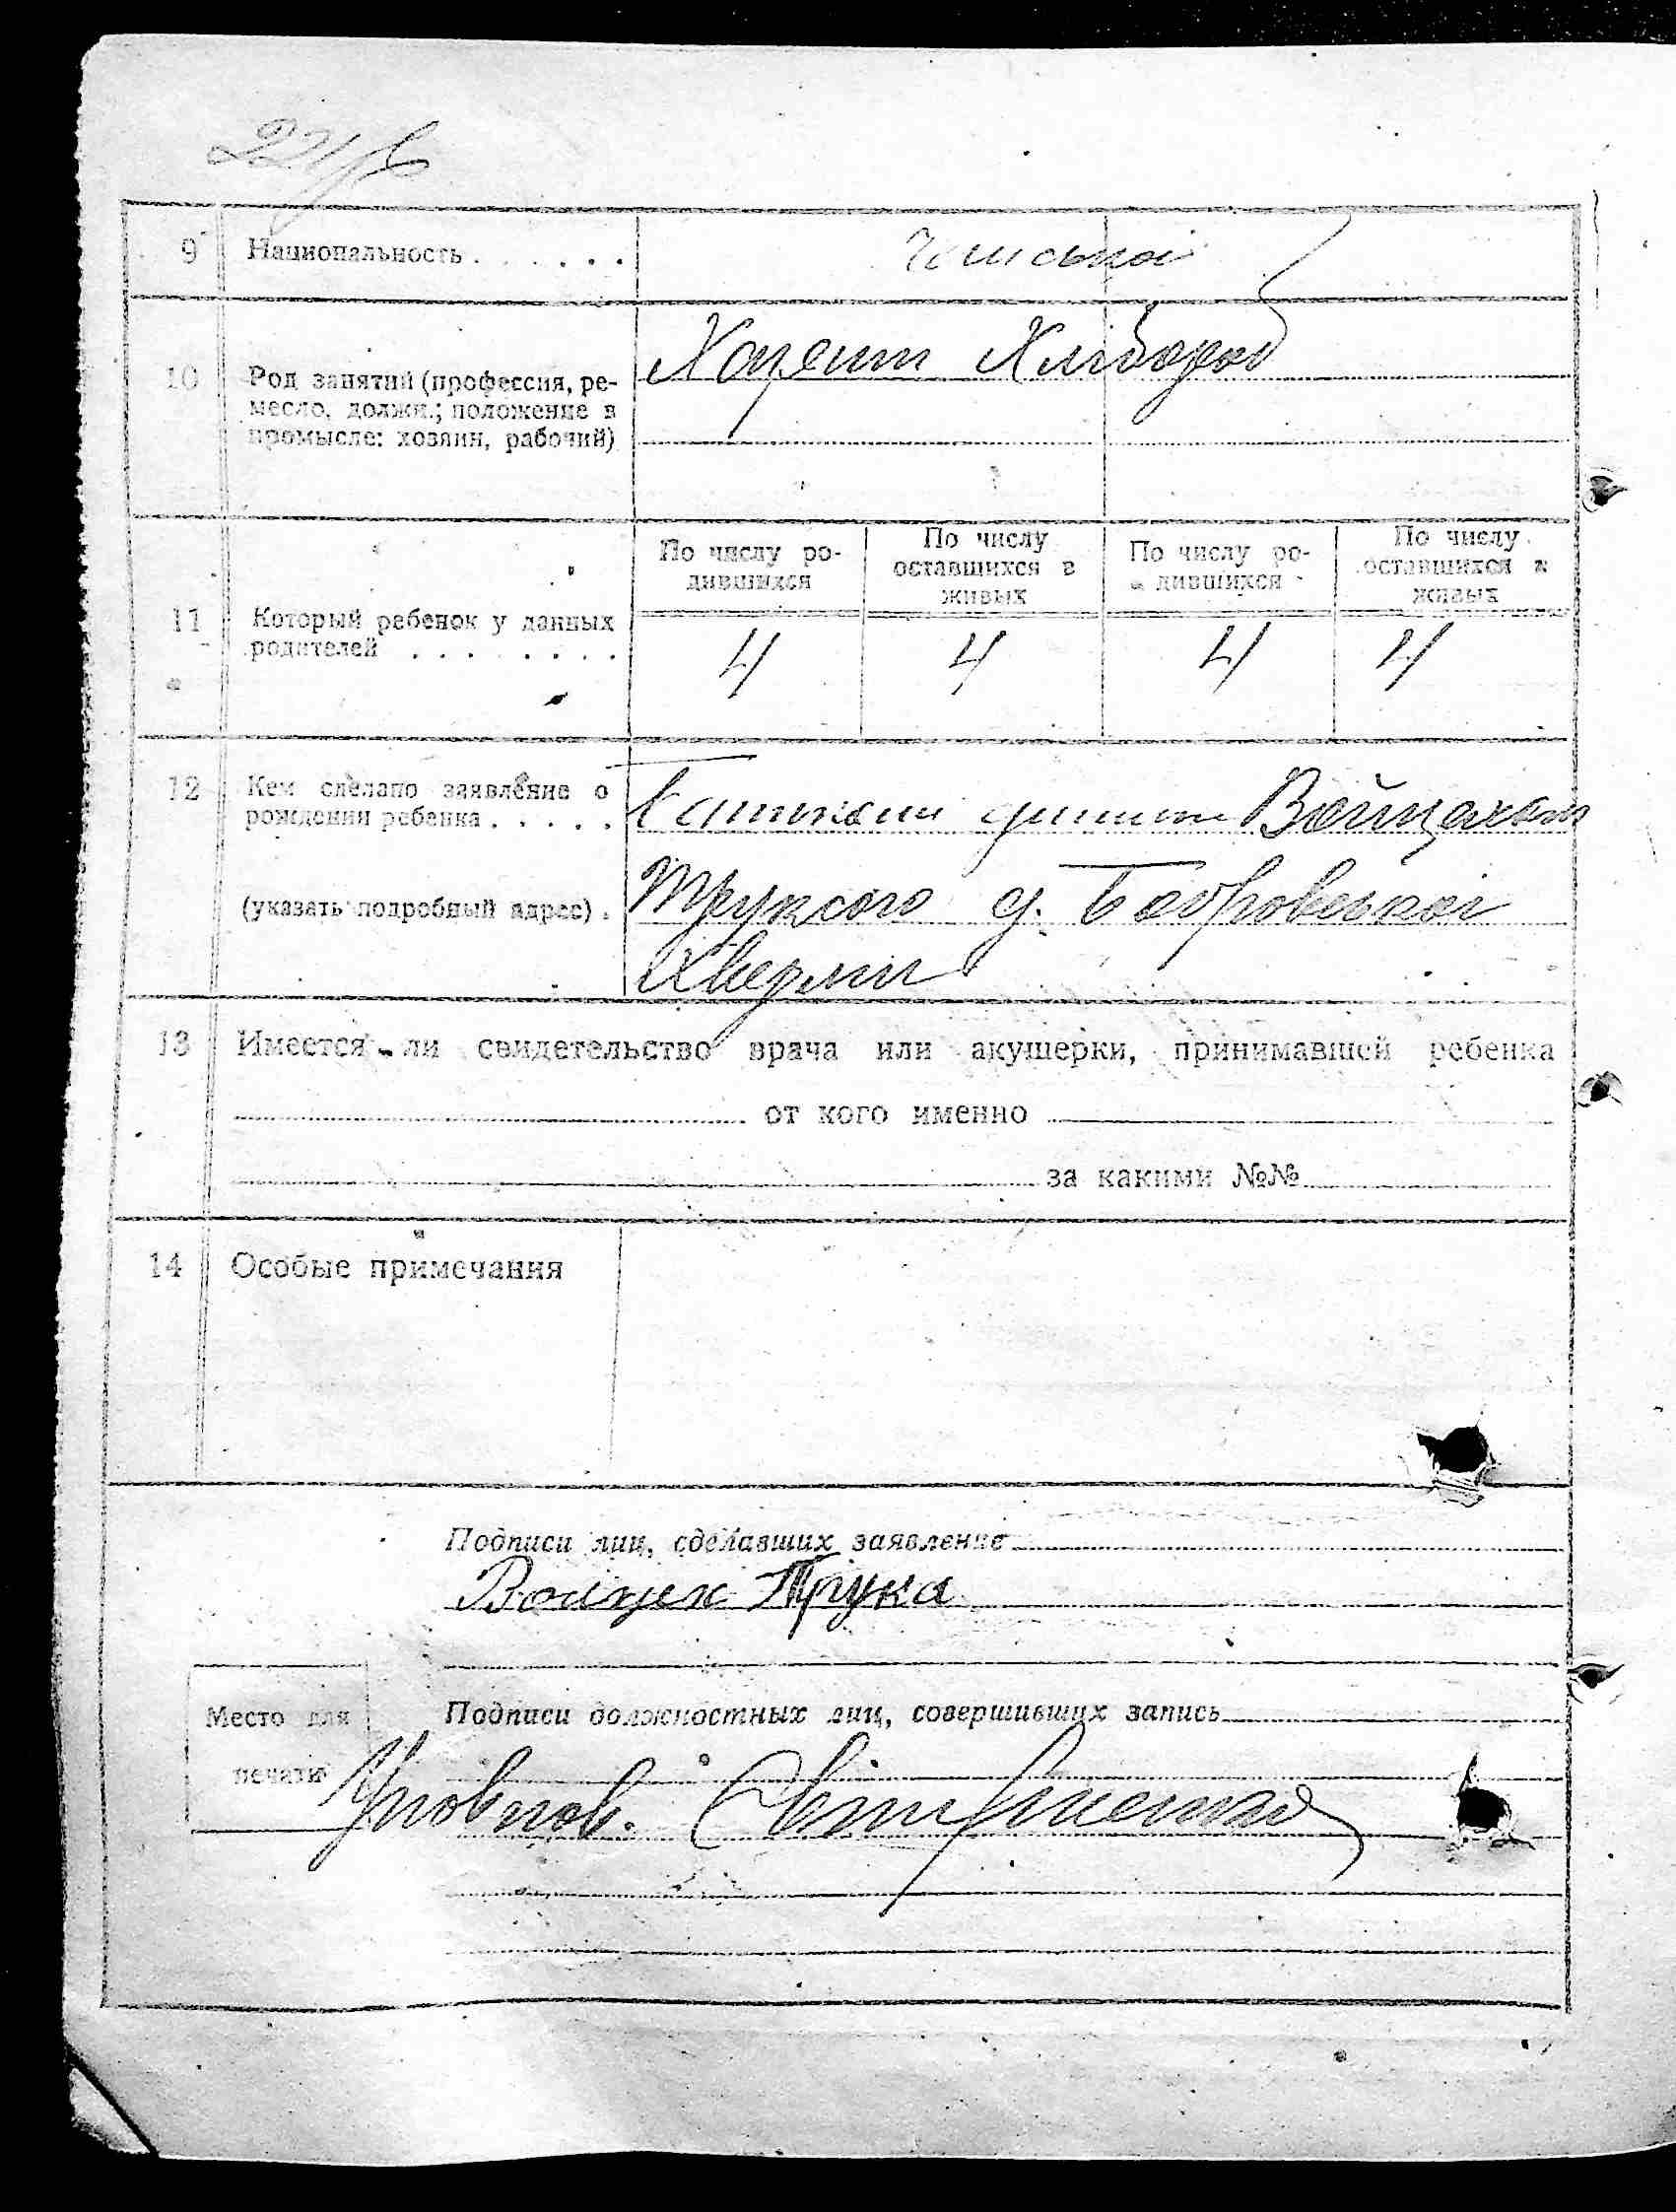 9 Национальность . . . . . . Чешської
10 Род занятий (профессия, ре-
месло, должн.; положение в
промысле: хозяин, рабочий)
Хлібороб
По числу ро-
дившихся
По числу
оставшихся в
живых
По числу ро-
дившихся
По числу
оставшихся в
живых
11 Который ребенок у данных
родителей . . . . . . . .
4 4 4 4
12 Кем сделано заявление о
рождении ребенка . . . . .
Батьком дитини Войцехом
(указать подробный адрес) .
Трукою
13 Имеется ли свидетельство врача или акушерки, принимавшей ребенка
от кого именно
за какими №№
14 Особые примечания
Подписи лиц, сделавших заявление
Войцех Трука
Место для
печати
Подписи должностных лиц, совершивших запись